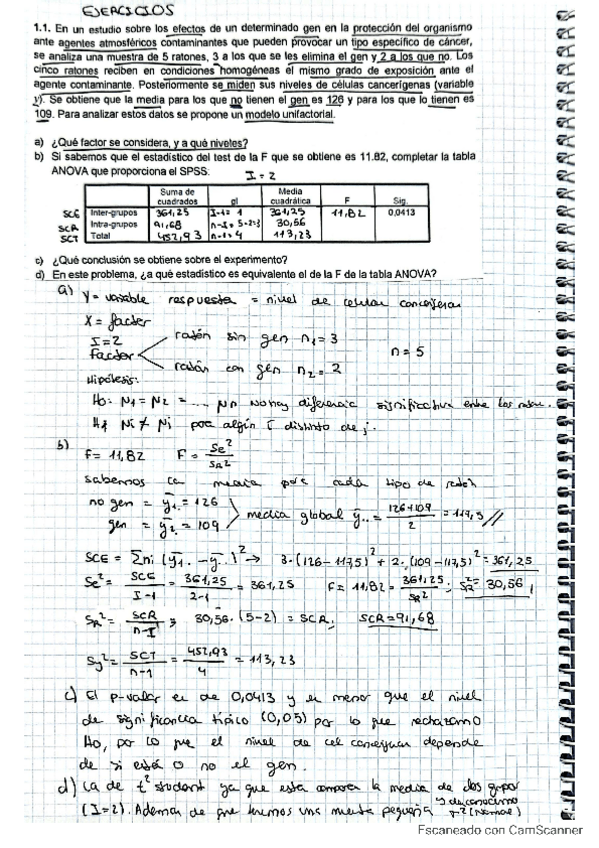 EJERCICIOS
1.1. En un estudio sobre los efectos de un determinado gen en la protección del organismo
ante agentes atmosféricos contaminantes que pueden provocar un tipo específico de cáncer,
se analiza una muestra de 5 ratones, 3 a los que se les elimina el gen y 2 a los que no. Los
cinco ratones reciben en condiciones homogéneas el mismo grado de exposición ante el
agente contaminante. Posteriormente se miden sus niveles de células cancerígenas (variable
y). Se obtiene que la media para los que no tienen el gen es 126 y para los que lo tienen es
109. Para analizar estos datos se propone un modelo unifactorial.
a) ¿Qué factor se considera, y a qué niveles?
b) Si sabemos que el estadístico del test de la F que se obtiene es 11.82, completar la tabla
ANOVA que proporciona el SPSS: I = 2
Suma de cuadrados gl Media cuadrática F Sig.
SCE Inter-grupos 361,25 I-1 = 1 361,25 11,82 0,0413
SCR Intra-grupos 91,68 n-I = 5-2=3 30,56
SCT Total 452,93 n-1 = 4 113,23
c) ¿Qué conclusión se obtiene sobre el experimento?
d) En este problema, ¿a qué estadístico es equivalente el de la F de la tabla ANOVA?
a) Y = variable respuesta = nivel de celulas cancerígenas
X = factor
I = 2 ratón sin gen n₁ = 3
Factor n = 5
ratón con gen n₂ = 2
Hipótesis:
H₀: μ₁ = μ₂ = ... μn No hay diferencia significativa entre los
H₁ μi ≠ μj para algún i distinto de j.
b) F = 11,82 F = Se²/SR²
sabemos la media para cada tipo de ratón
no gen = ȳ₁. = 126
media global ȳ.. = 126+109/2 = 117,5 //
gen = ȳ₂. = 109
SCE = Σni (ȳi. - ȳ..)² → 3·(126-117,5)² + 2·(109-117,5)² = 361,25
Se² = SCE/I-1 = 361,25/2-1 = 361,25 F = 11,82 = 361,25/SR² ; SR² = 30,56
SR² = SCR/n-I ; 30,56·(5-2) = SCR; SCR = 91,68
Sy² = SCT/n-1 = 452,93/4 = 113,23
c) El p-valor es de 0,0413 y es menor que el nivel
de significancia típico (0,05) por lo que rechazamo
H₀, por lo que el nivel de cel depende
de si está o no el gen.
d) La de t² student ya que esta compara la media de dos grupos
(I=2). Ademas de que tenemos una muestra pequeña y desconocemo
σ² (Normal)
Escaneado con CamScanner